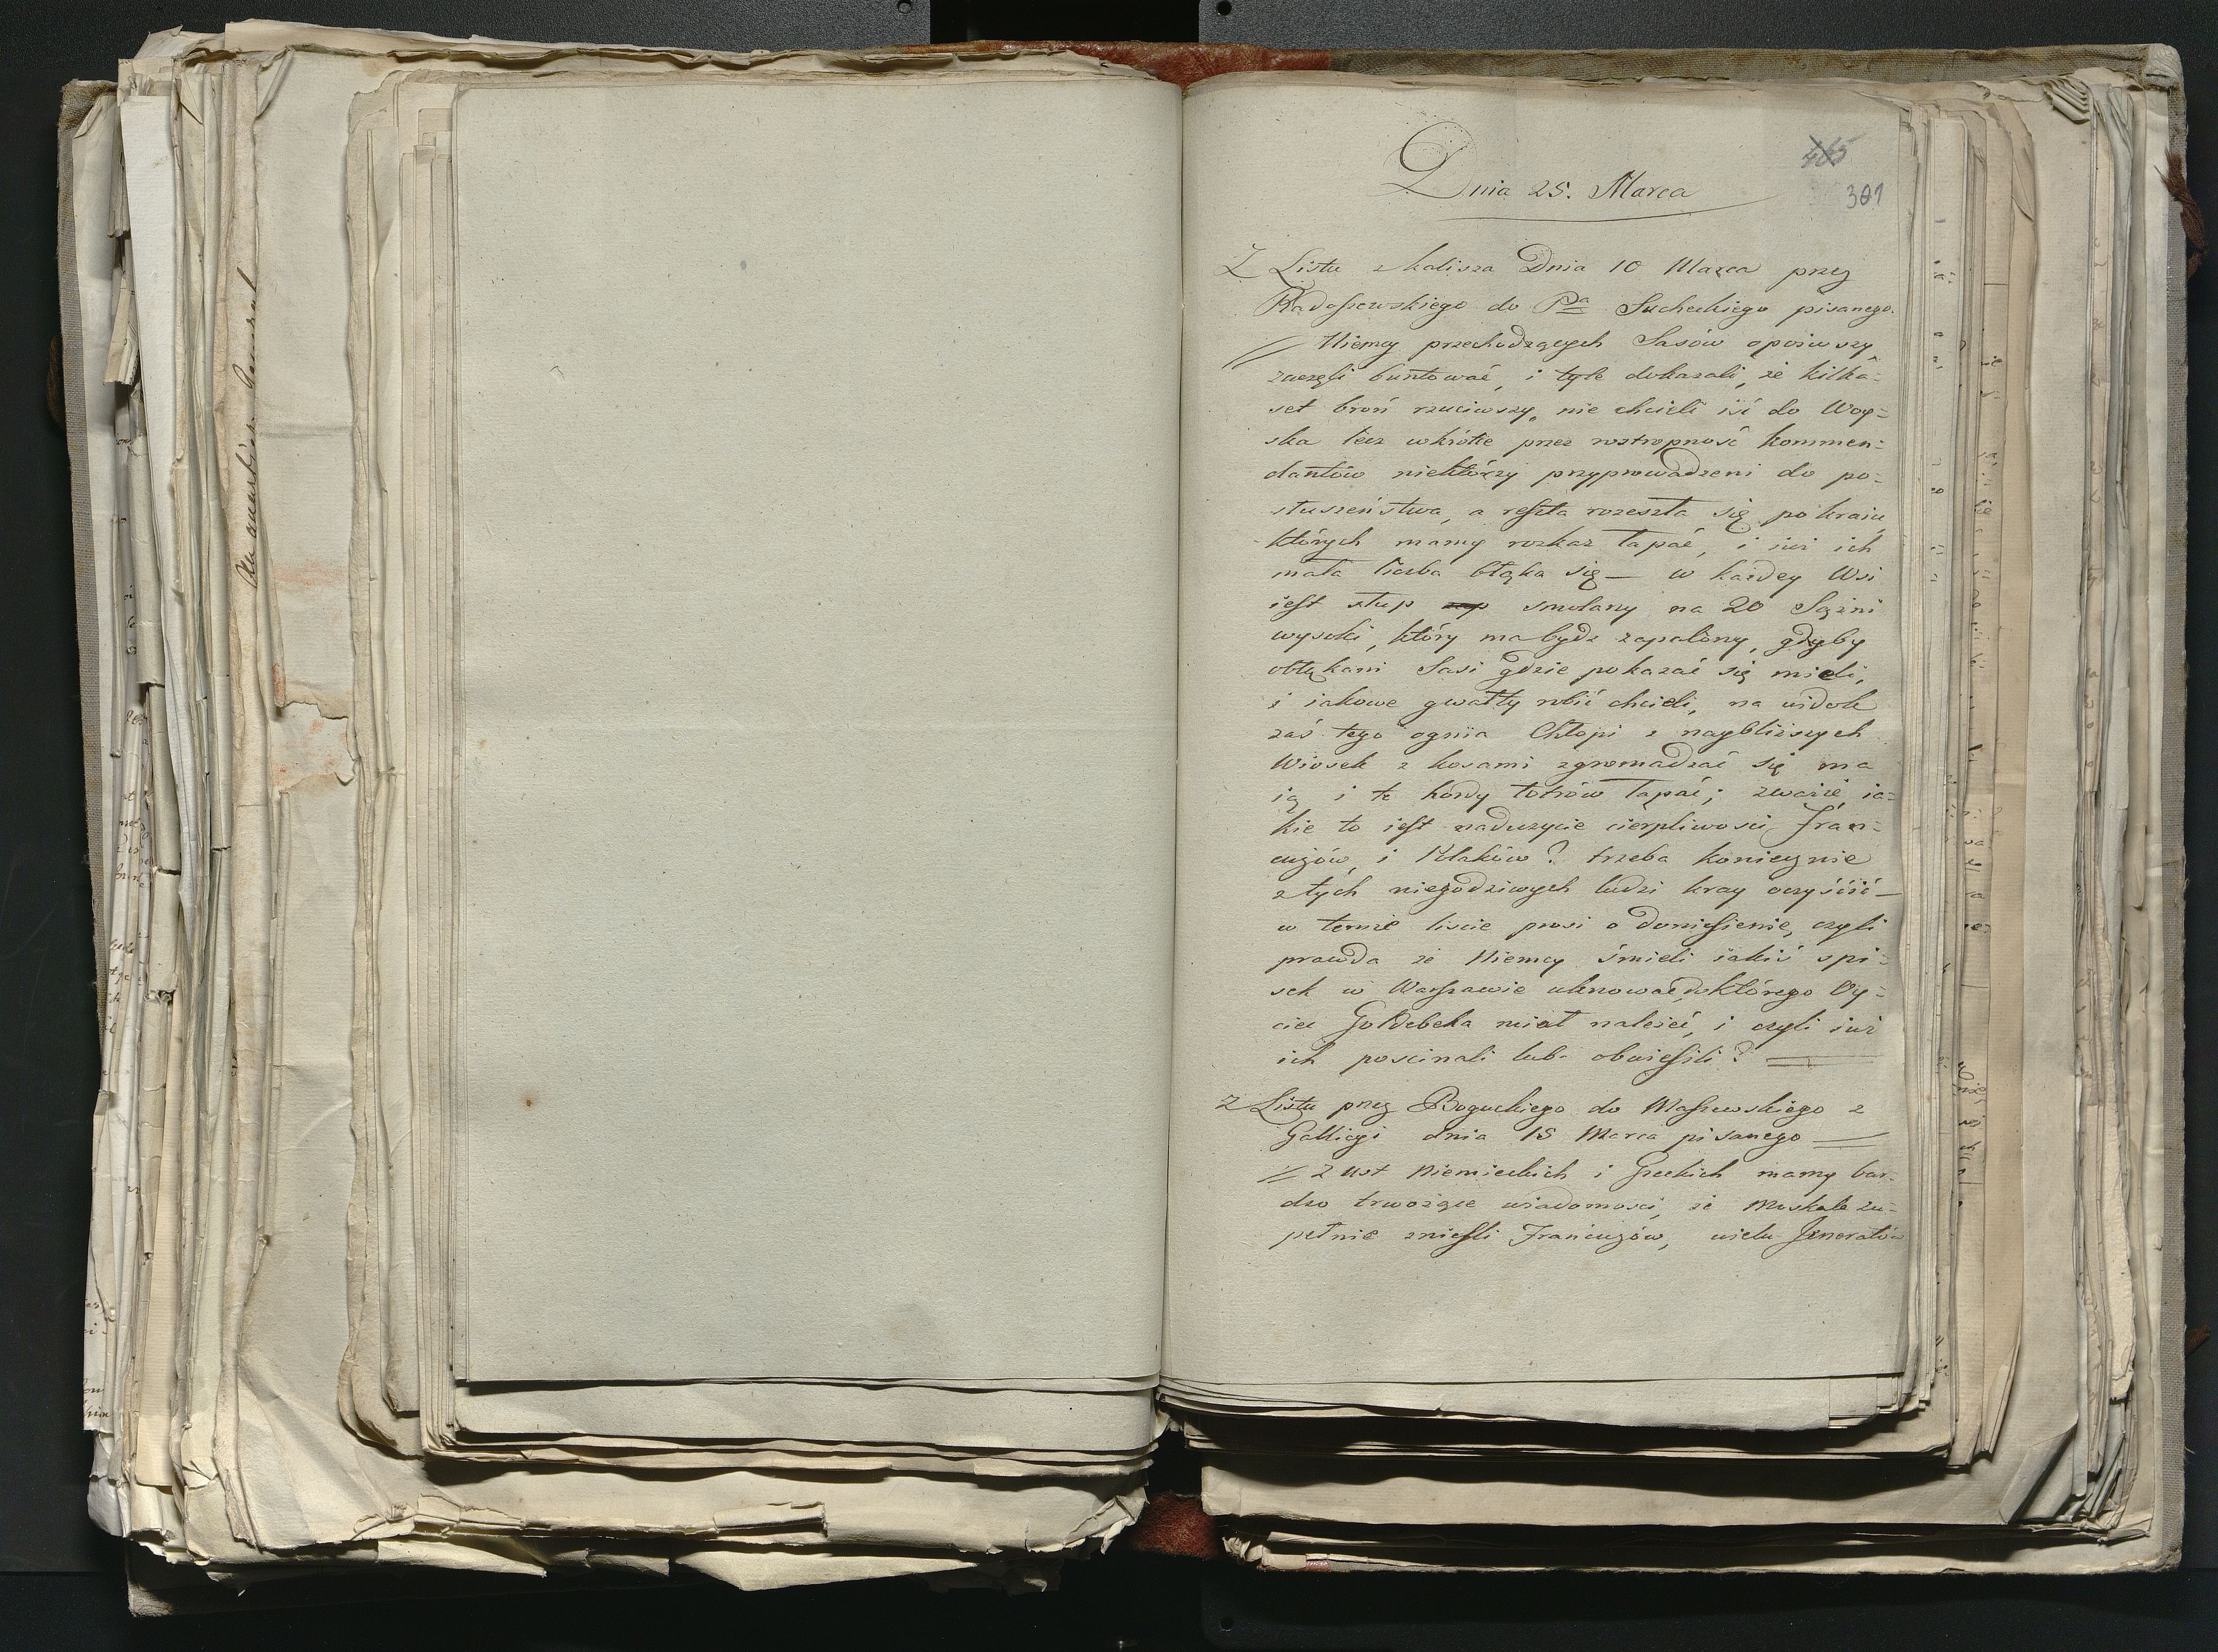 465
301
Dnia 25. Marca
Z Listu z Kalisza Dnia 10 Marca przez
Radoszewskiego do Pa Sucheckiego pisanego.
// Niemcy przechodzących Sasów opoiwszy,
zaczęli buntować, i tyle dokazali, że kilka=
set broń rzuciwszy, nie chcieli iść do Woy=
ska lecz wkrótce przez roztropność kommen=
dantów niektórzy przyprowadzeni do po=
słuszeństwa, a reszta rozeszła się po kraiu,
których mamy rozkaz łapać, i iuż ich
mała liczba błąka się — w każdey Wsi
iest słup smolany na 20 Sążni
wysoki, który ma bydz zapalony, gdyby
obłąkani Sasi gdzie pokazać się mieli,
i iakowe gwałty robić chcieli, na widok
zaś tego ognia Chłopi z naybliższych
Wiosek z kosami zgromadzać się ma
ią i te hordy łotrów łapać; zważcie ia=
kie to iest nadużycie cierpliwości Fran=
cuzów, i Polaków? trzeba koniecznie
z tych niegodziwych ludzi kray oczyścić —
w temże liście prosi o doniesienie, czyli
prawda że Niemcy śmieli iakiś spi=
sek w Warszawie uknować, do którego Oy=
ciec Goldebeka miał należeć, i czyli iuż
ich pościnali lub obwiesili? =
Z Listu przez Boguckiego do Maszewskiego z
Gallicyi dnia 15 Marca pisanego =
// z ust Niemieckich i Greckich mamy bar=
dzo trwożące wiadomości, że Moskale zu=
pełnie znieśli Francuzów, wielu Jenerałów